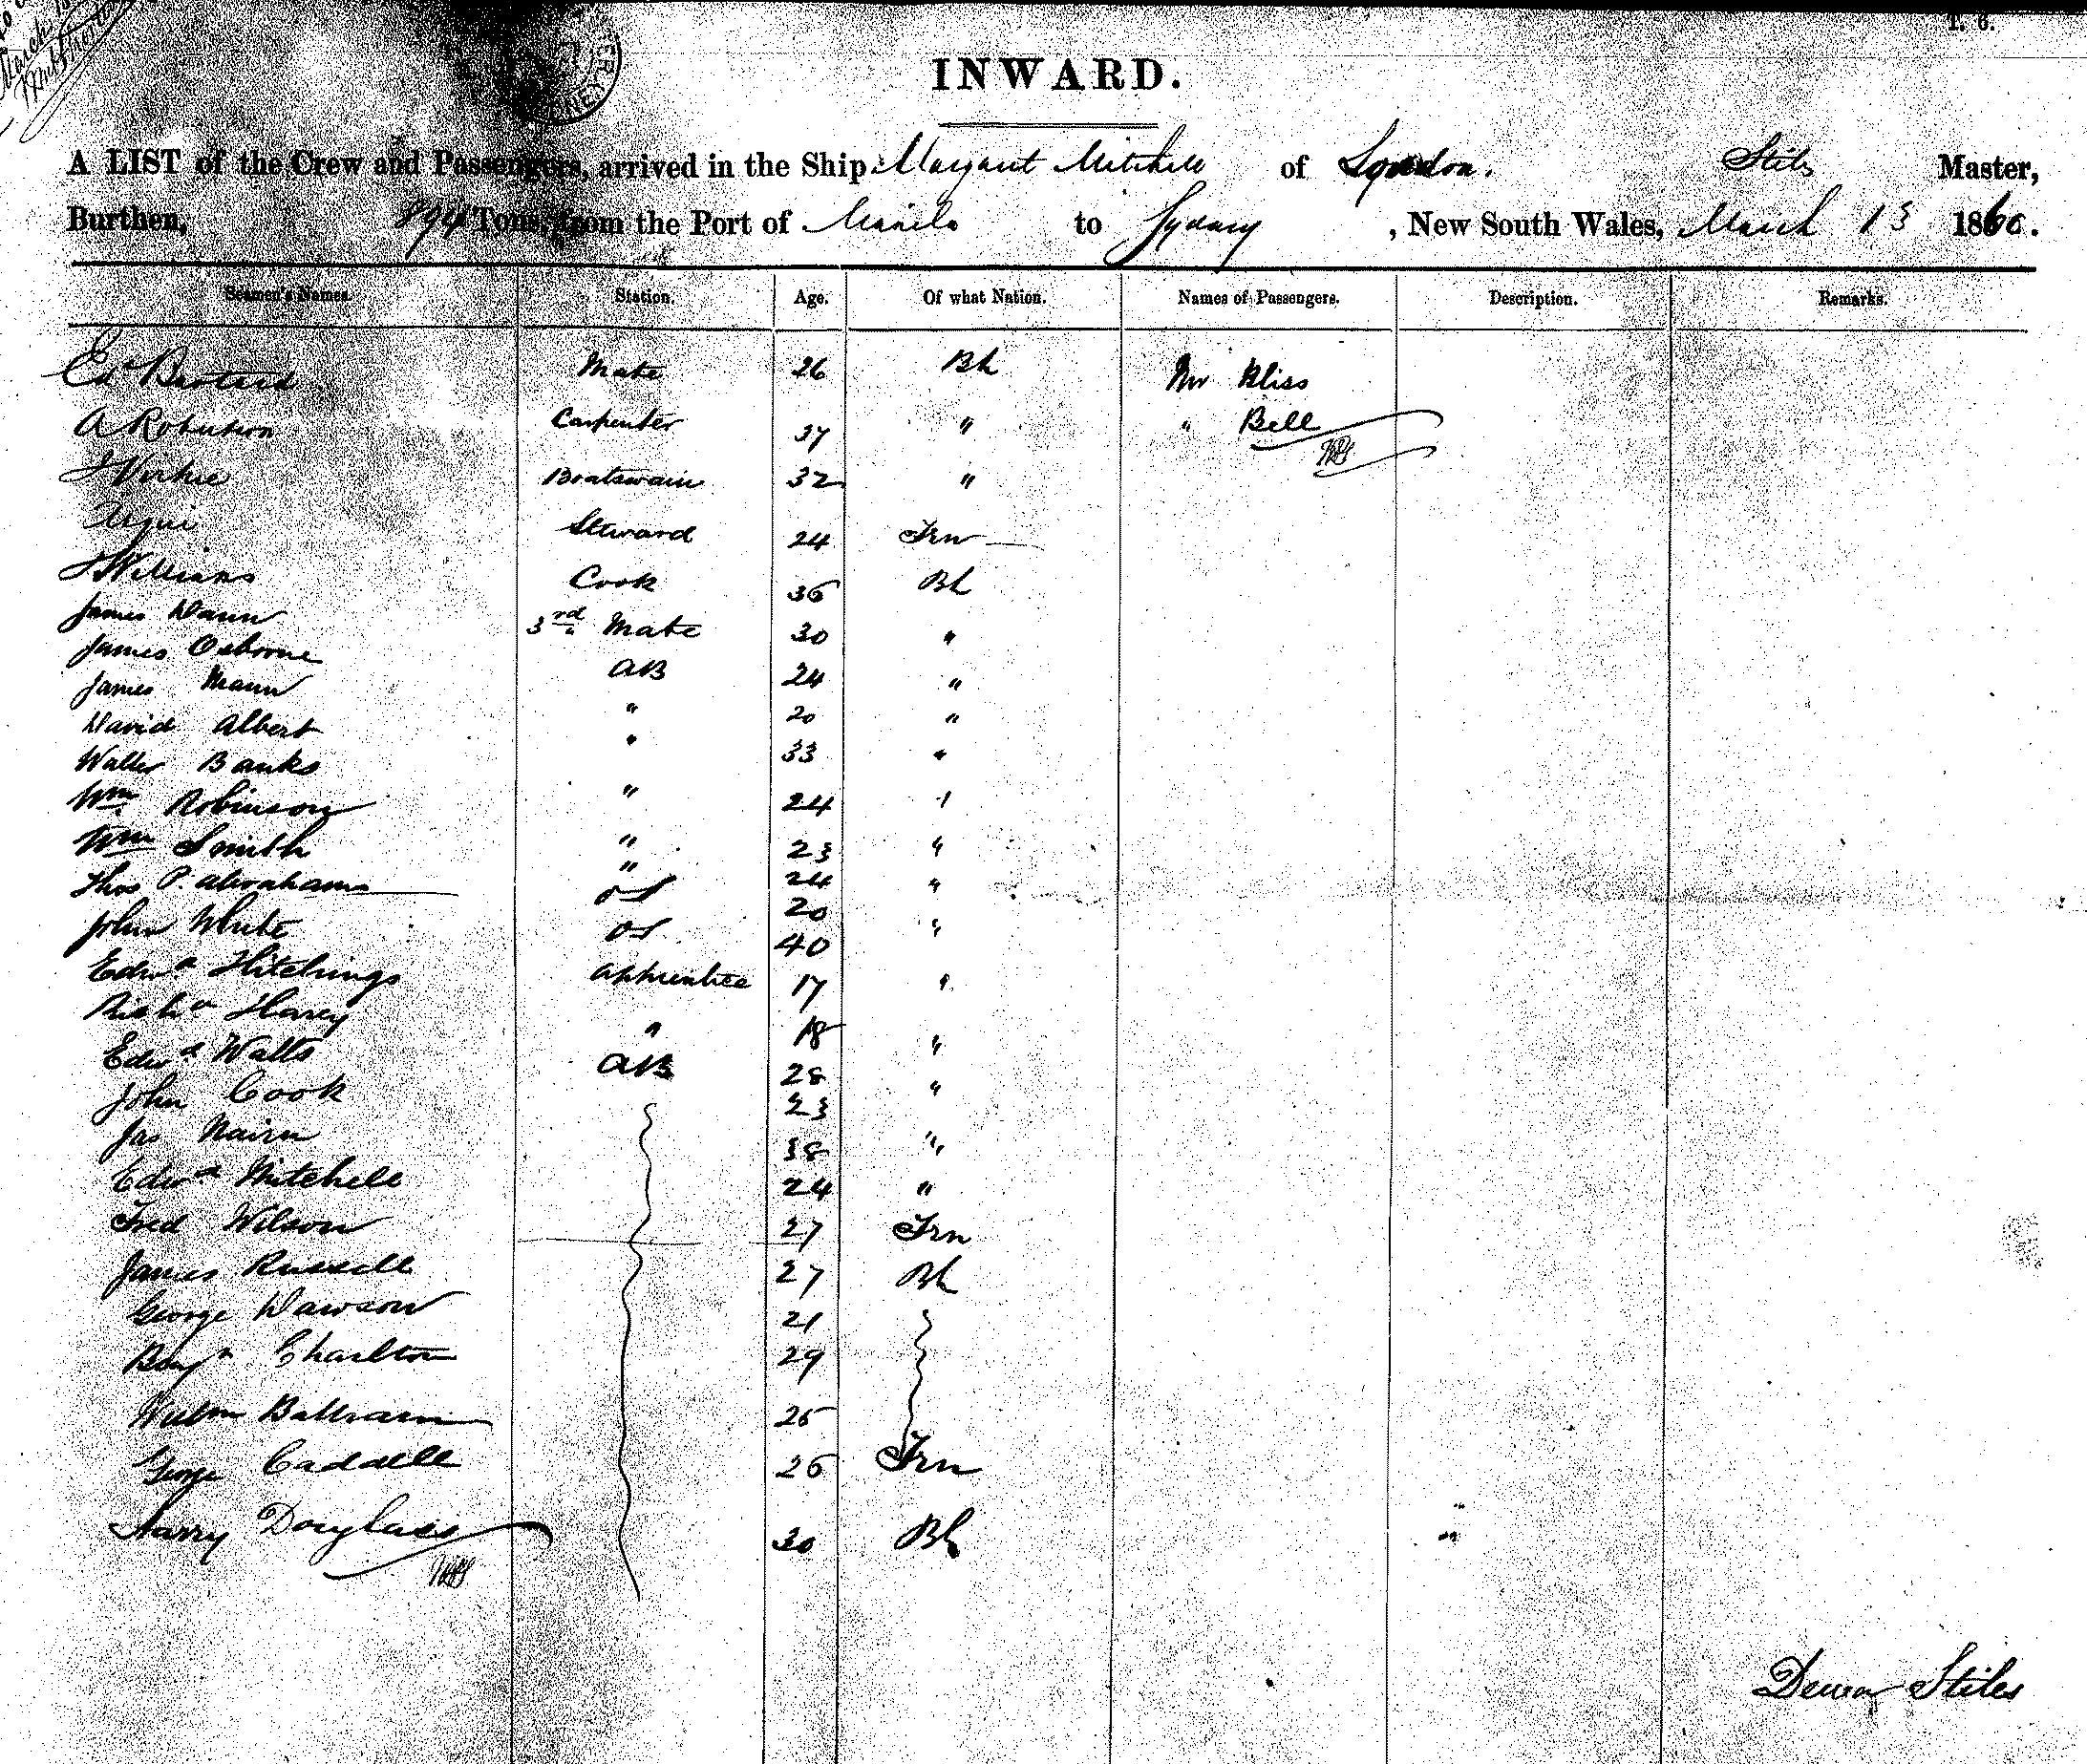 T. 6.
INWARD.
A LIST of the Crew and Passengers, arrived in the Ship Margaret Mitchell of London. Stiles Master,
Burthen, 894 Tons, from the Port of Manila to Sydney, New South Wales, March 13 1860.
Seamen's Names. Station. Age. Of what Nation. Names of Passengers. Description. Remarks.
Ed Mate 26 Bh Mr Bliss
A Robertson Carpenter 37 " " Bell
J Boatswain 32 "
Steward 24 Frn
J Williams Cook 36 Bh
James Dann 3rd Mate 30 "
James Osborne AB 24 "
James Mann " 20 "
David Albert " 33 "
Walter Banks
Wm Robinson " 24 "
Wm Smith " 23 "
Thos P. Abrahams " 24 "
OS 20
John White OS 40 "
Edwd Hitchings Apprentice 17 "
Richd Harry " 18 "
Edwd Watts AB 28
John Cook 23 "
Jas Nairn 38 "
Edwd Mitchell 24 "
Fred Wilson 27 Frn
James Russell 27 Bh
George Dawson 21
Benjn Charlton 29
25
George Caddell 26 Frn
Harry Douglass 30 Bh
Stiles